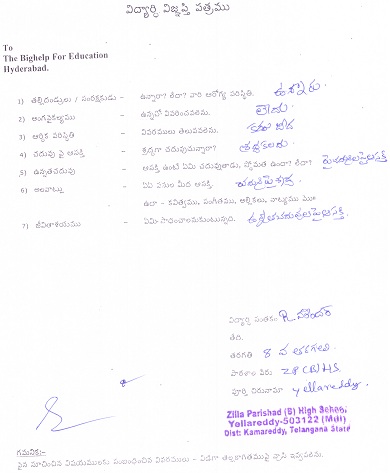 విద్యార్ధి విజ్ఞప్తి పత్రము
To
The Bighelp For Education
Hyderabad.
1) తల్లిదండ్రులు / సంరక్షకుడు - ఉన్నారా? లేదా? వారి ఆరోగ్య పరిస్థితి. ఉన్నారు
2) అంగవైకల్యము - ఉన్నచో వివరించవలెను. లేదు
3) ఆర్ధిక పరిస్థితి - వివరములు తెలుపవలెను.
4) చదువు పై ఆసక్తి - శ్రద్ధగా చదువుచున్నారా?
5) ఉన్నతచదువు - ఆసక్తి ఉంటే ఏమి చదువుతాడు, స్తోమత ఉందా? లేదా?
6) అలవాట్లు - ఏఏ పనుల మీద ఆసక్తి.
ఉదా - కవిత్వము, సంగీతము, అల్లికలు, నాట్యము
7) జీవితాశయము - ఏమి సాధించాలనుకుంటున్నది.
విద్యార్థి సంతకం
తేది.
తరగతి 8 వ తరగతి
పాఠశాల పేరు ZP(B)HS
పూర్తి చిరునామా yellareddy.
Zilla Parishad (B) High School,
Yellareddy-503122 (Mdl)
Dist: Kamareddy, Telangana State
గమనిక:-
పైన సూచించిన విషయములకు సంబంధించిన వివరములు - విడిగా తెల్లకాగితముపై వ్రాసి ఇవ్వవలెను.